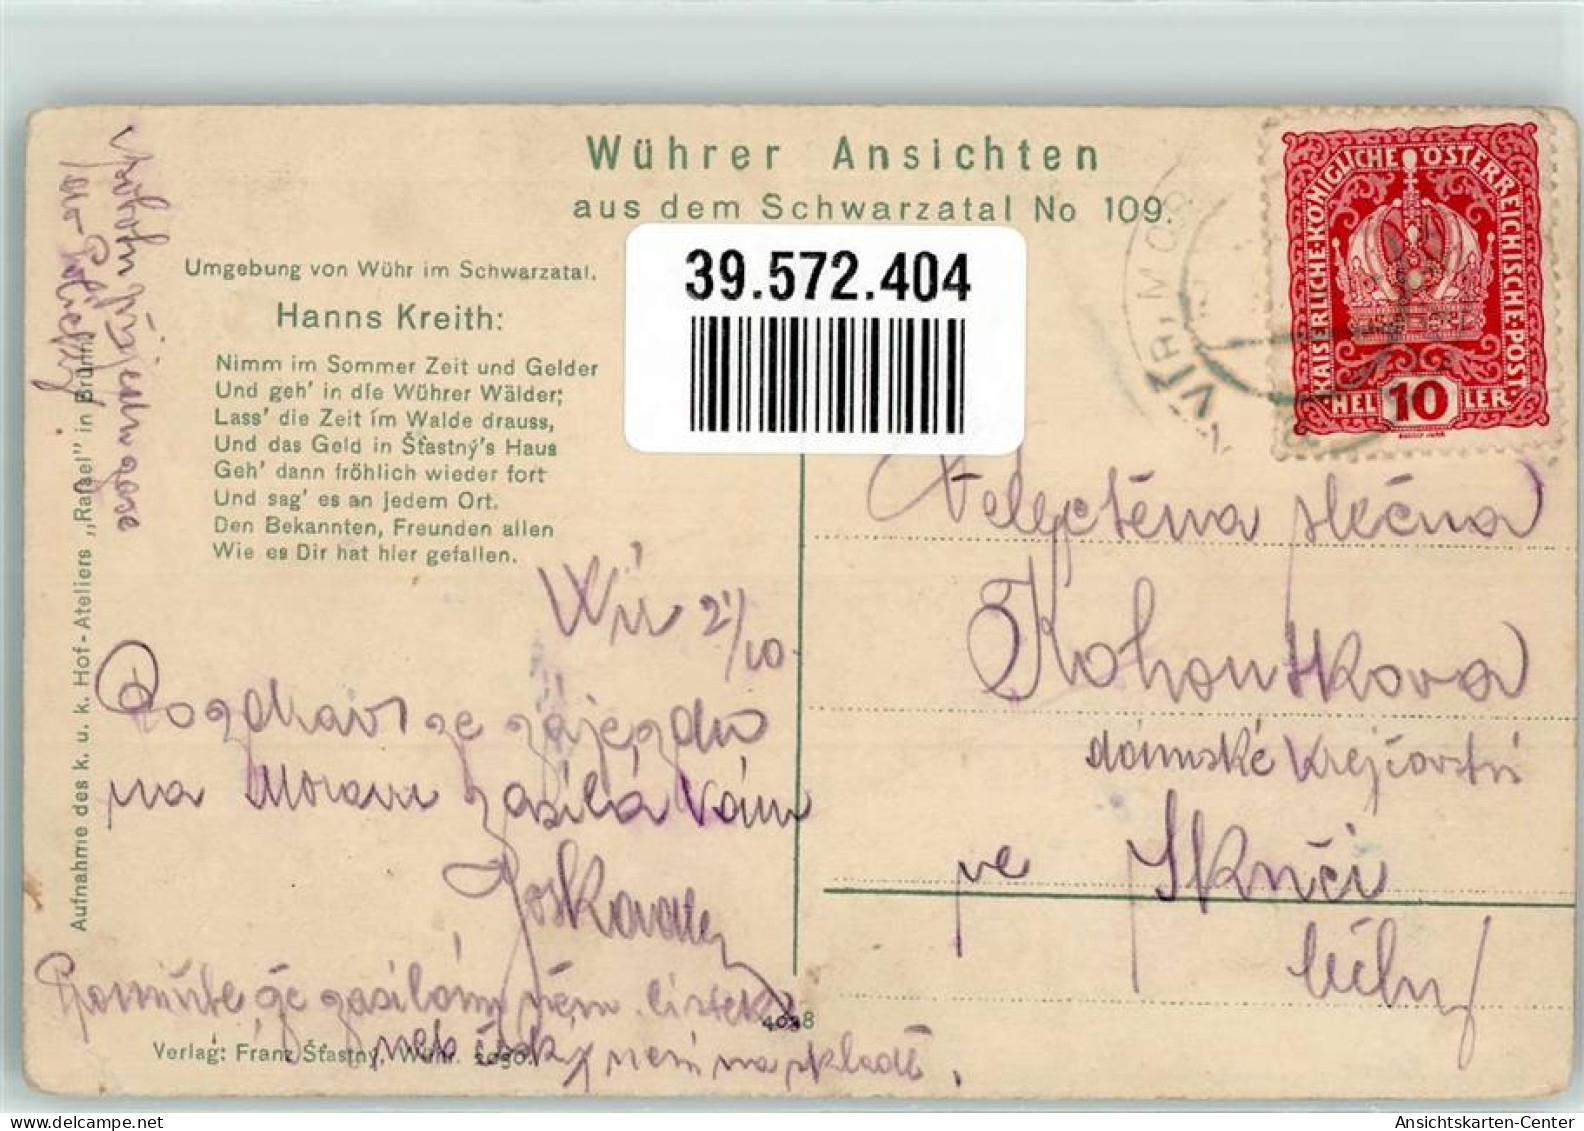 Wührer Ansichten
aus dem Schwarzatal No 109.
39.572.404
Umgebung von Wühr im Schwarzatal.
Hanns Kreith:
Nimm im Sommer Zeit und Gelder
Und geh' in die Wührer Wälder;
Lass' die Zeit im Walde drauss,
Und das Geld in Šťastný's Haus
Geh' dann fröhlich wieder fort
Und sag' es an jedem Ort.
Den Bekannten, Freunden allen
Wie es Dir hat hier gefallen.
Aufnahme des k. u. k. Hof-Ateliers „Rafael" in Brünn.
KAISERLICHE·KÖNIGLICHE·ÖSTERREICHISCHE·POST
10
HELLER
Vír 2/10
Pozdrav ze zájezdu
na Moravu zasílá Vám
Promiňte že zasílám
není na skladě.
Verlag: Franz Šťastný, Wühr.
4098
slečna
Kohoutkova
dámské krejčovství
ve Skuči